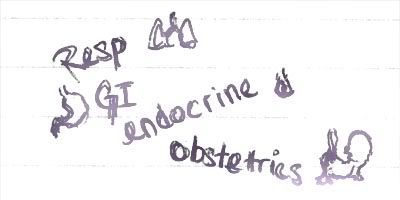 Resp
GI
endocrine
obstetrics